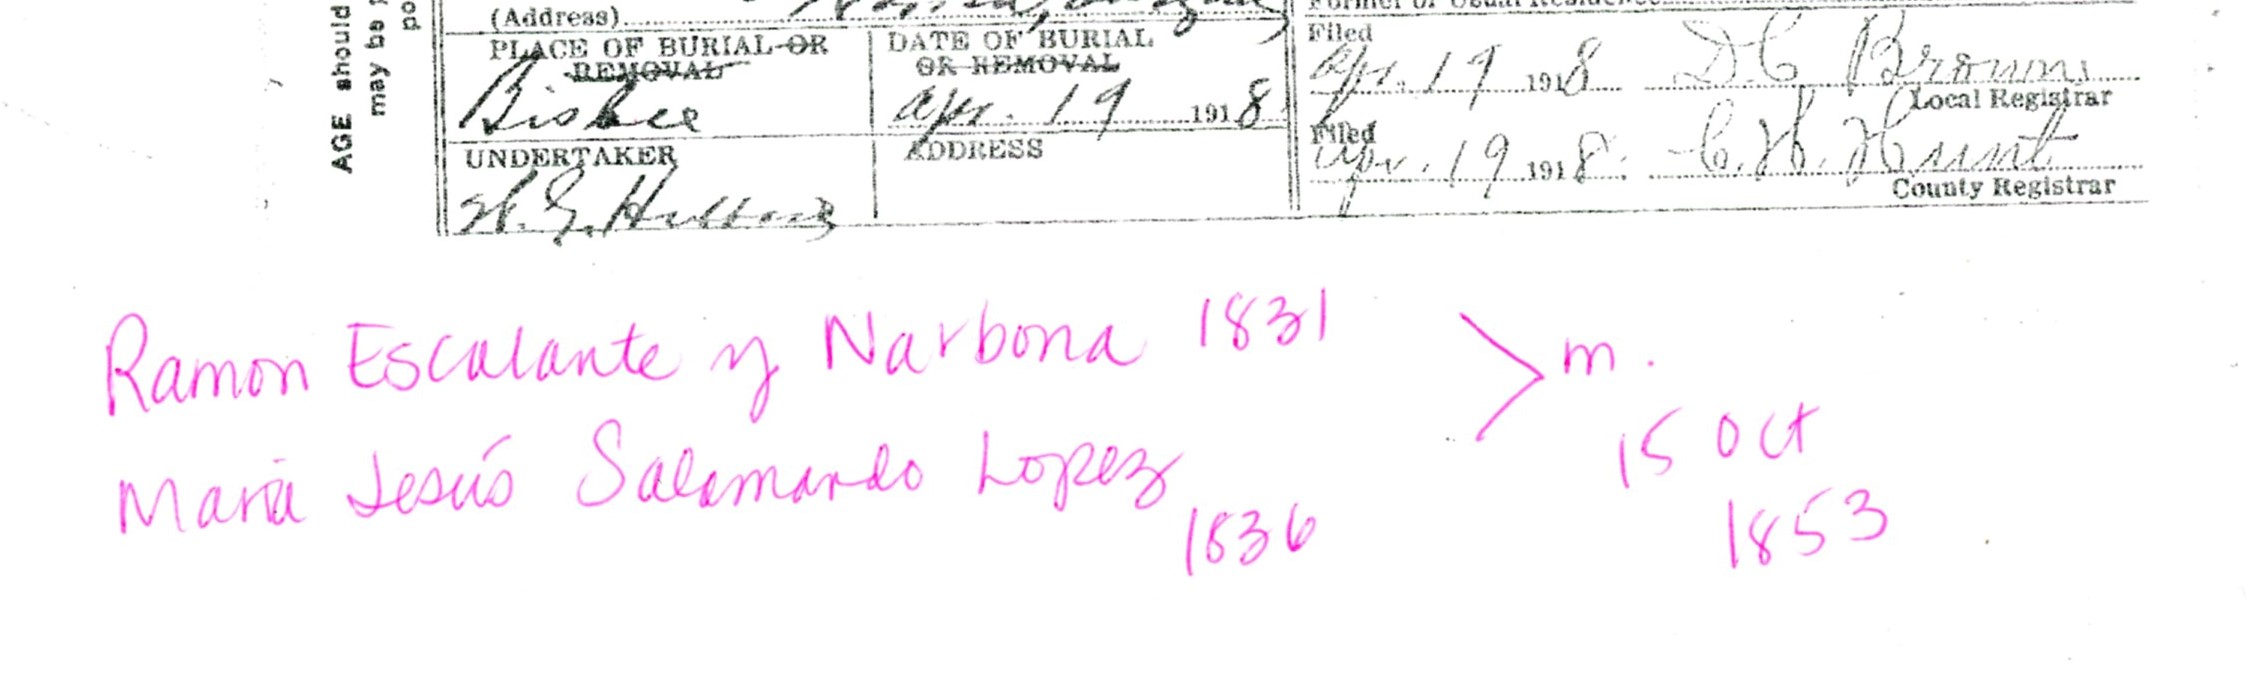 AGE should
may be
po
(Address)
PLACE OF BURIAL OR
REMOVAL
Bisbee
DATE OF BURIAL
OR REMOVAL
Apr. 19 1918
UNDERTAKER
ADDRESS
Filed
Apr. 19 1918 D C Brown
Local Registrar
Filed
Apr. 19 1918. C. H. Hunt
County Registrar
Ramon Escalante y Narbona 1831
Maria Jesús Salamando Lopez
1836
m.
15 Oct
1853